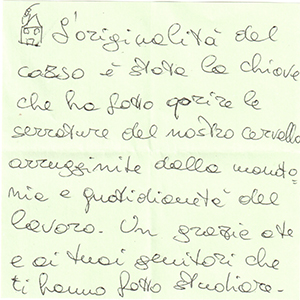 L'originalità del
corso è stata la chiave
che ha fatto aprire le
serrature del nostro cervello
arrugginite dalla monoto-
nia e quotidianetà del
lavoro. Un grazie a te
e ai tuoi genitori che
ti hanno fatto studiare.